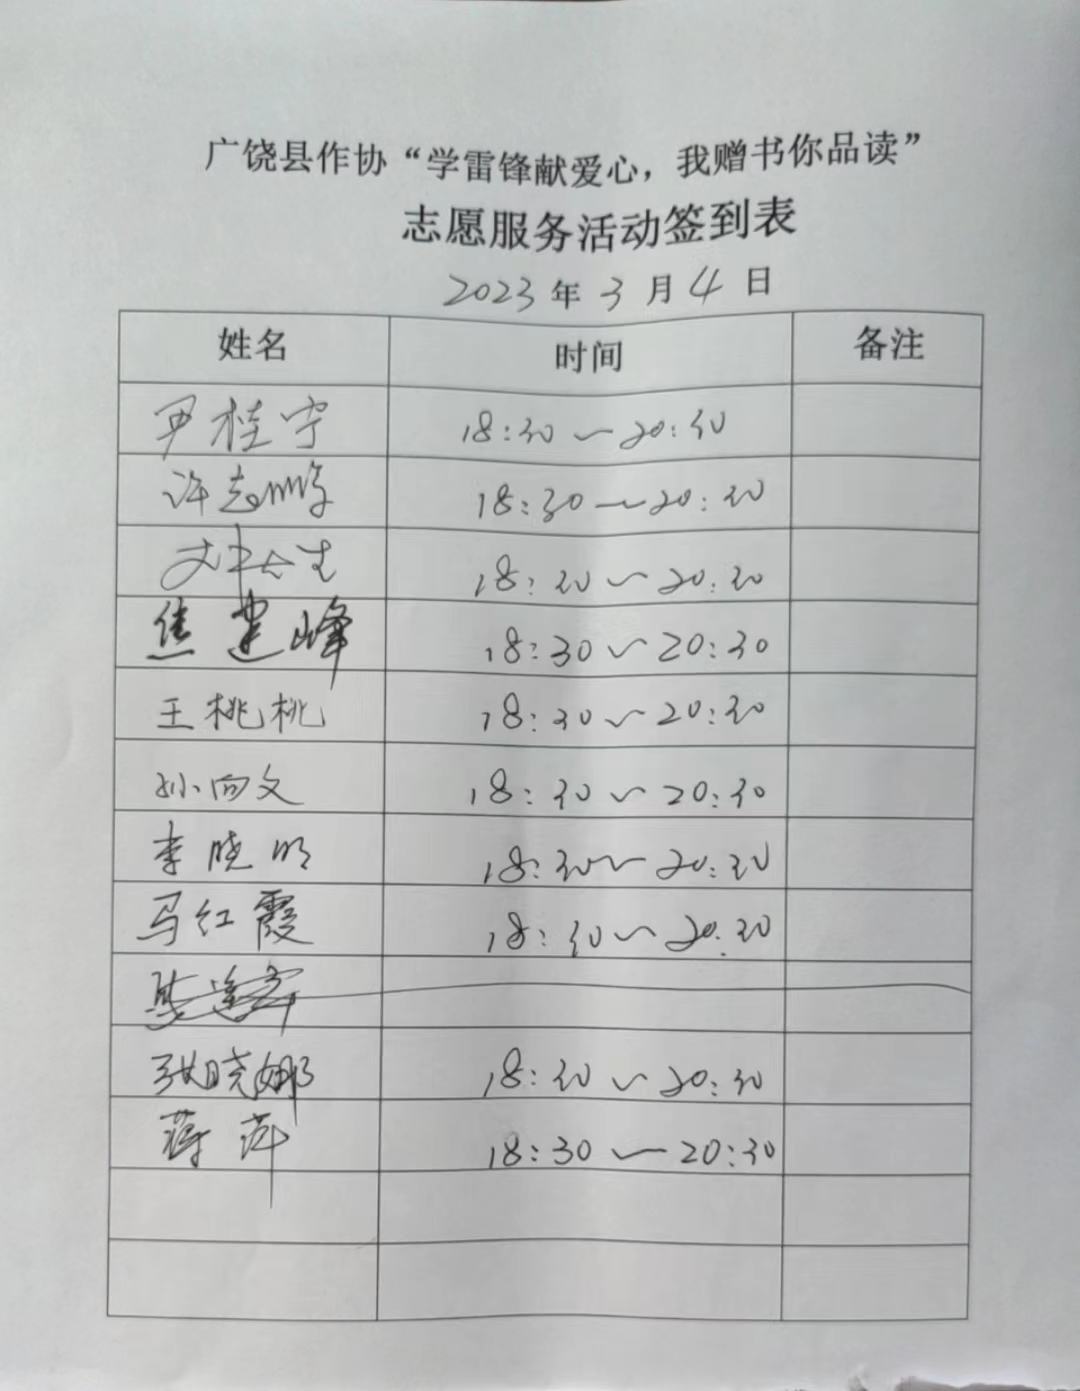 广饶县作协“学雷锋献爱心，我赠书你品读”
志愿服务活动签到表
2023年3月4日
姓名 时间 备注
尹桂宁 18:30～20:30
许志鹏 18:30～20:30
18:30～20:30
焦建峰 18:30～20:30
王桃桃 18:30～20:30
孙向文 18:30～20:30
李晓明 18:30～20:30
马红霞 18:30～20:30
张晓娜 18:30～20:30
蒋萍 18:30～20:30